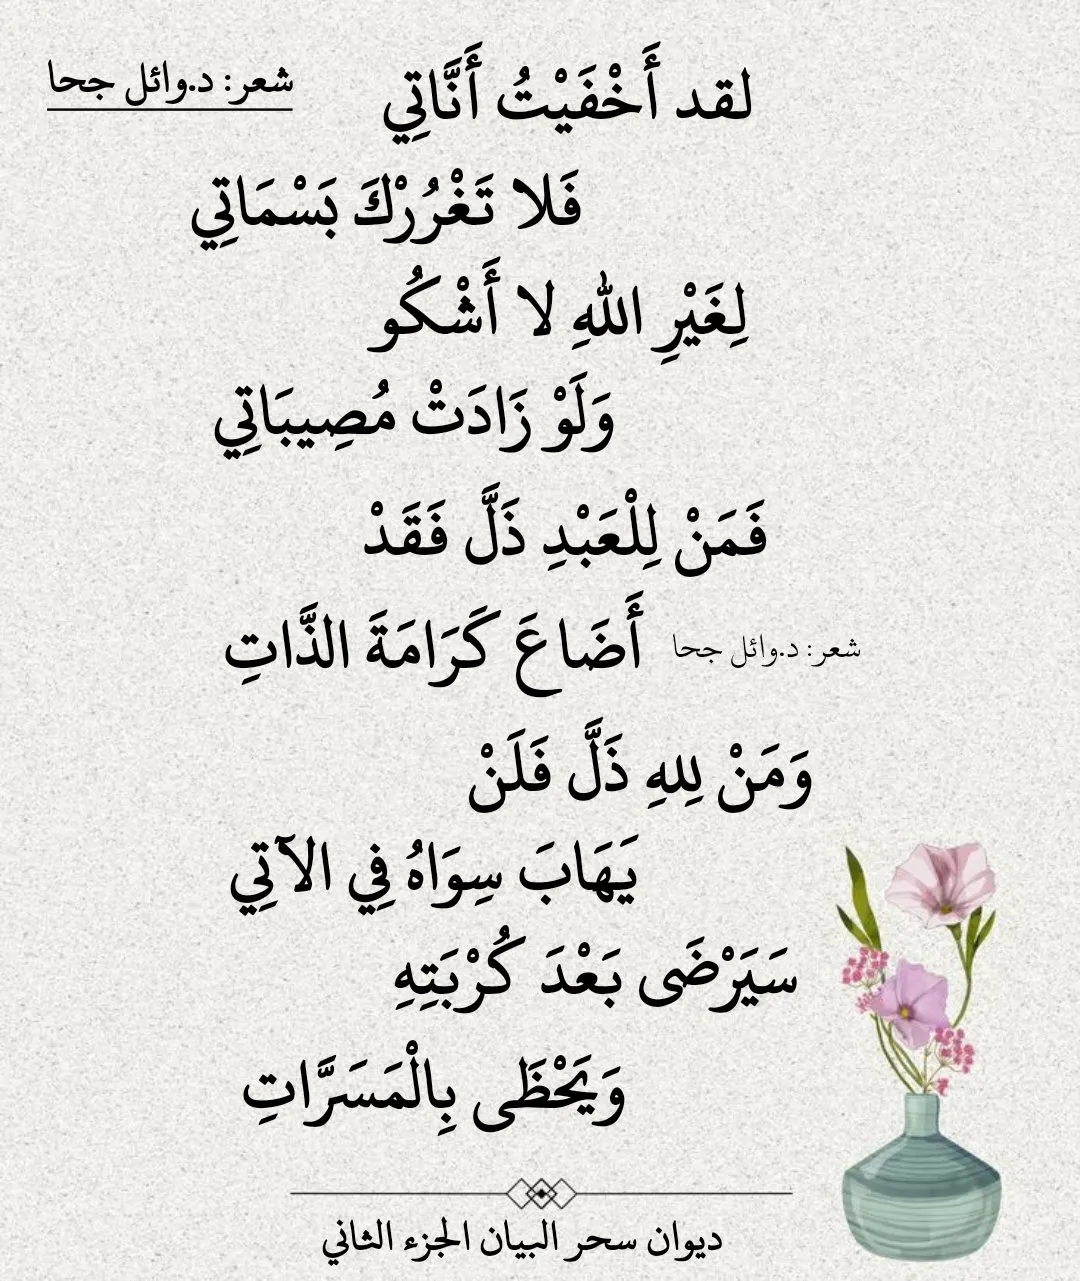 شعر: د.وائل جحا
لقد أَخْفَيْتُ أَنَّاتِي
فَلا تَغْرُرْكَ بَسْمَاتِي
لِغَيْرِ اللهِ لا أَشْكُو
وَلَوْ زَادَتْ مُصِيبَاتِي
فَمَنْ لِلْعَبْدِ ذَلَّ فَقَدْ
أَضَاعَ كَرَامَةَ الذَّاتِ
شعر: د.وائل جحا
وَمَنْ لِلهِ ذَلَّ فَلَنْ
يَهَابَ سِوَاهُ فِي الآتِي
سَيَرْضَى بَعْدَ كُرْبَتِهِ
وَيَحْظَى بِالْمَسَرَّاتِ
ديوان سحر البيان الجزء الثاني